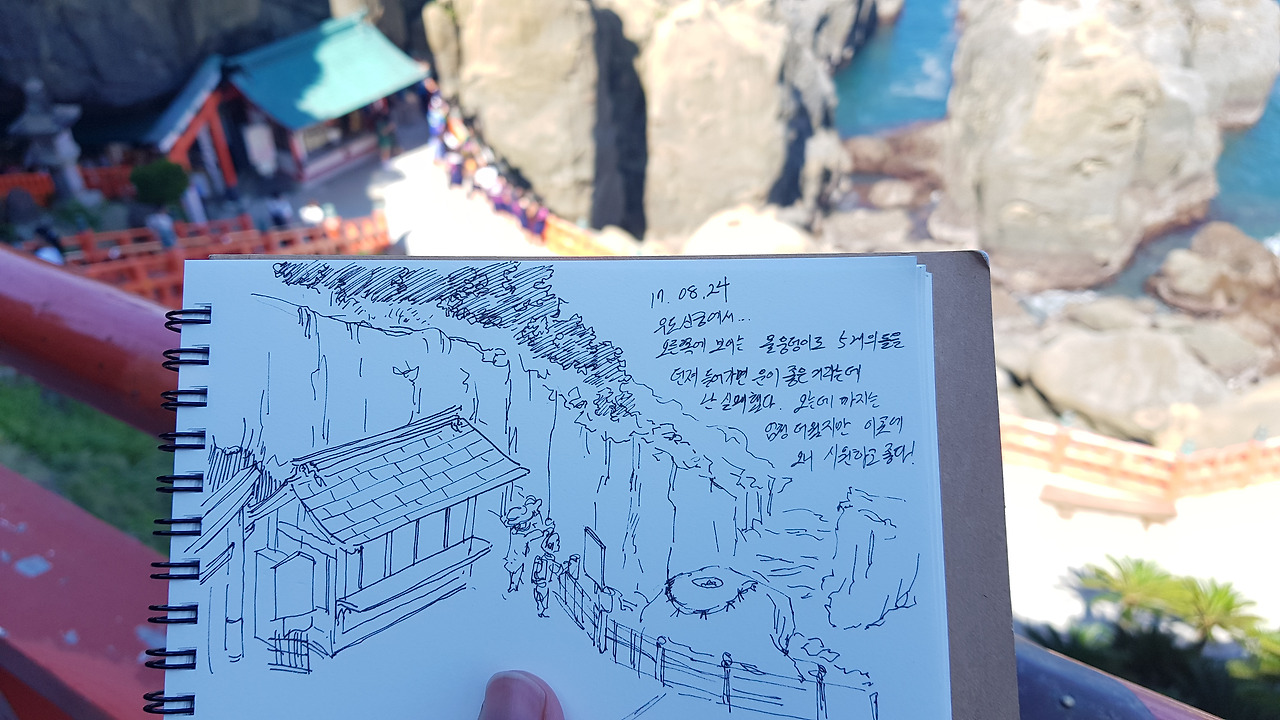 17. 08. 24
우도신궁에서...
오른쪽에 보이는 물웅덩이로 5개의 돌을
던져 들어가면 운이 좋은 거라는데
난 실패했다. 오는데 까지는
엄청 더웠지만 이곳에
시원하고 좋다!